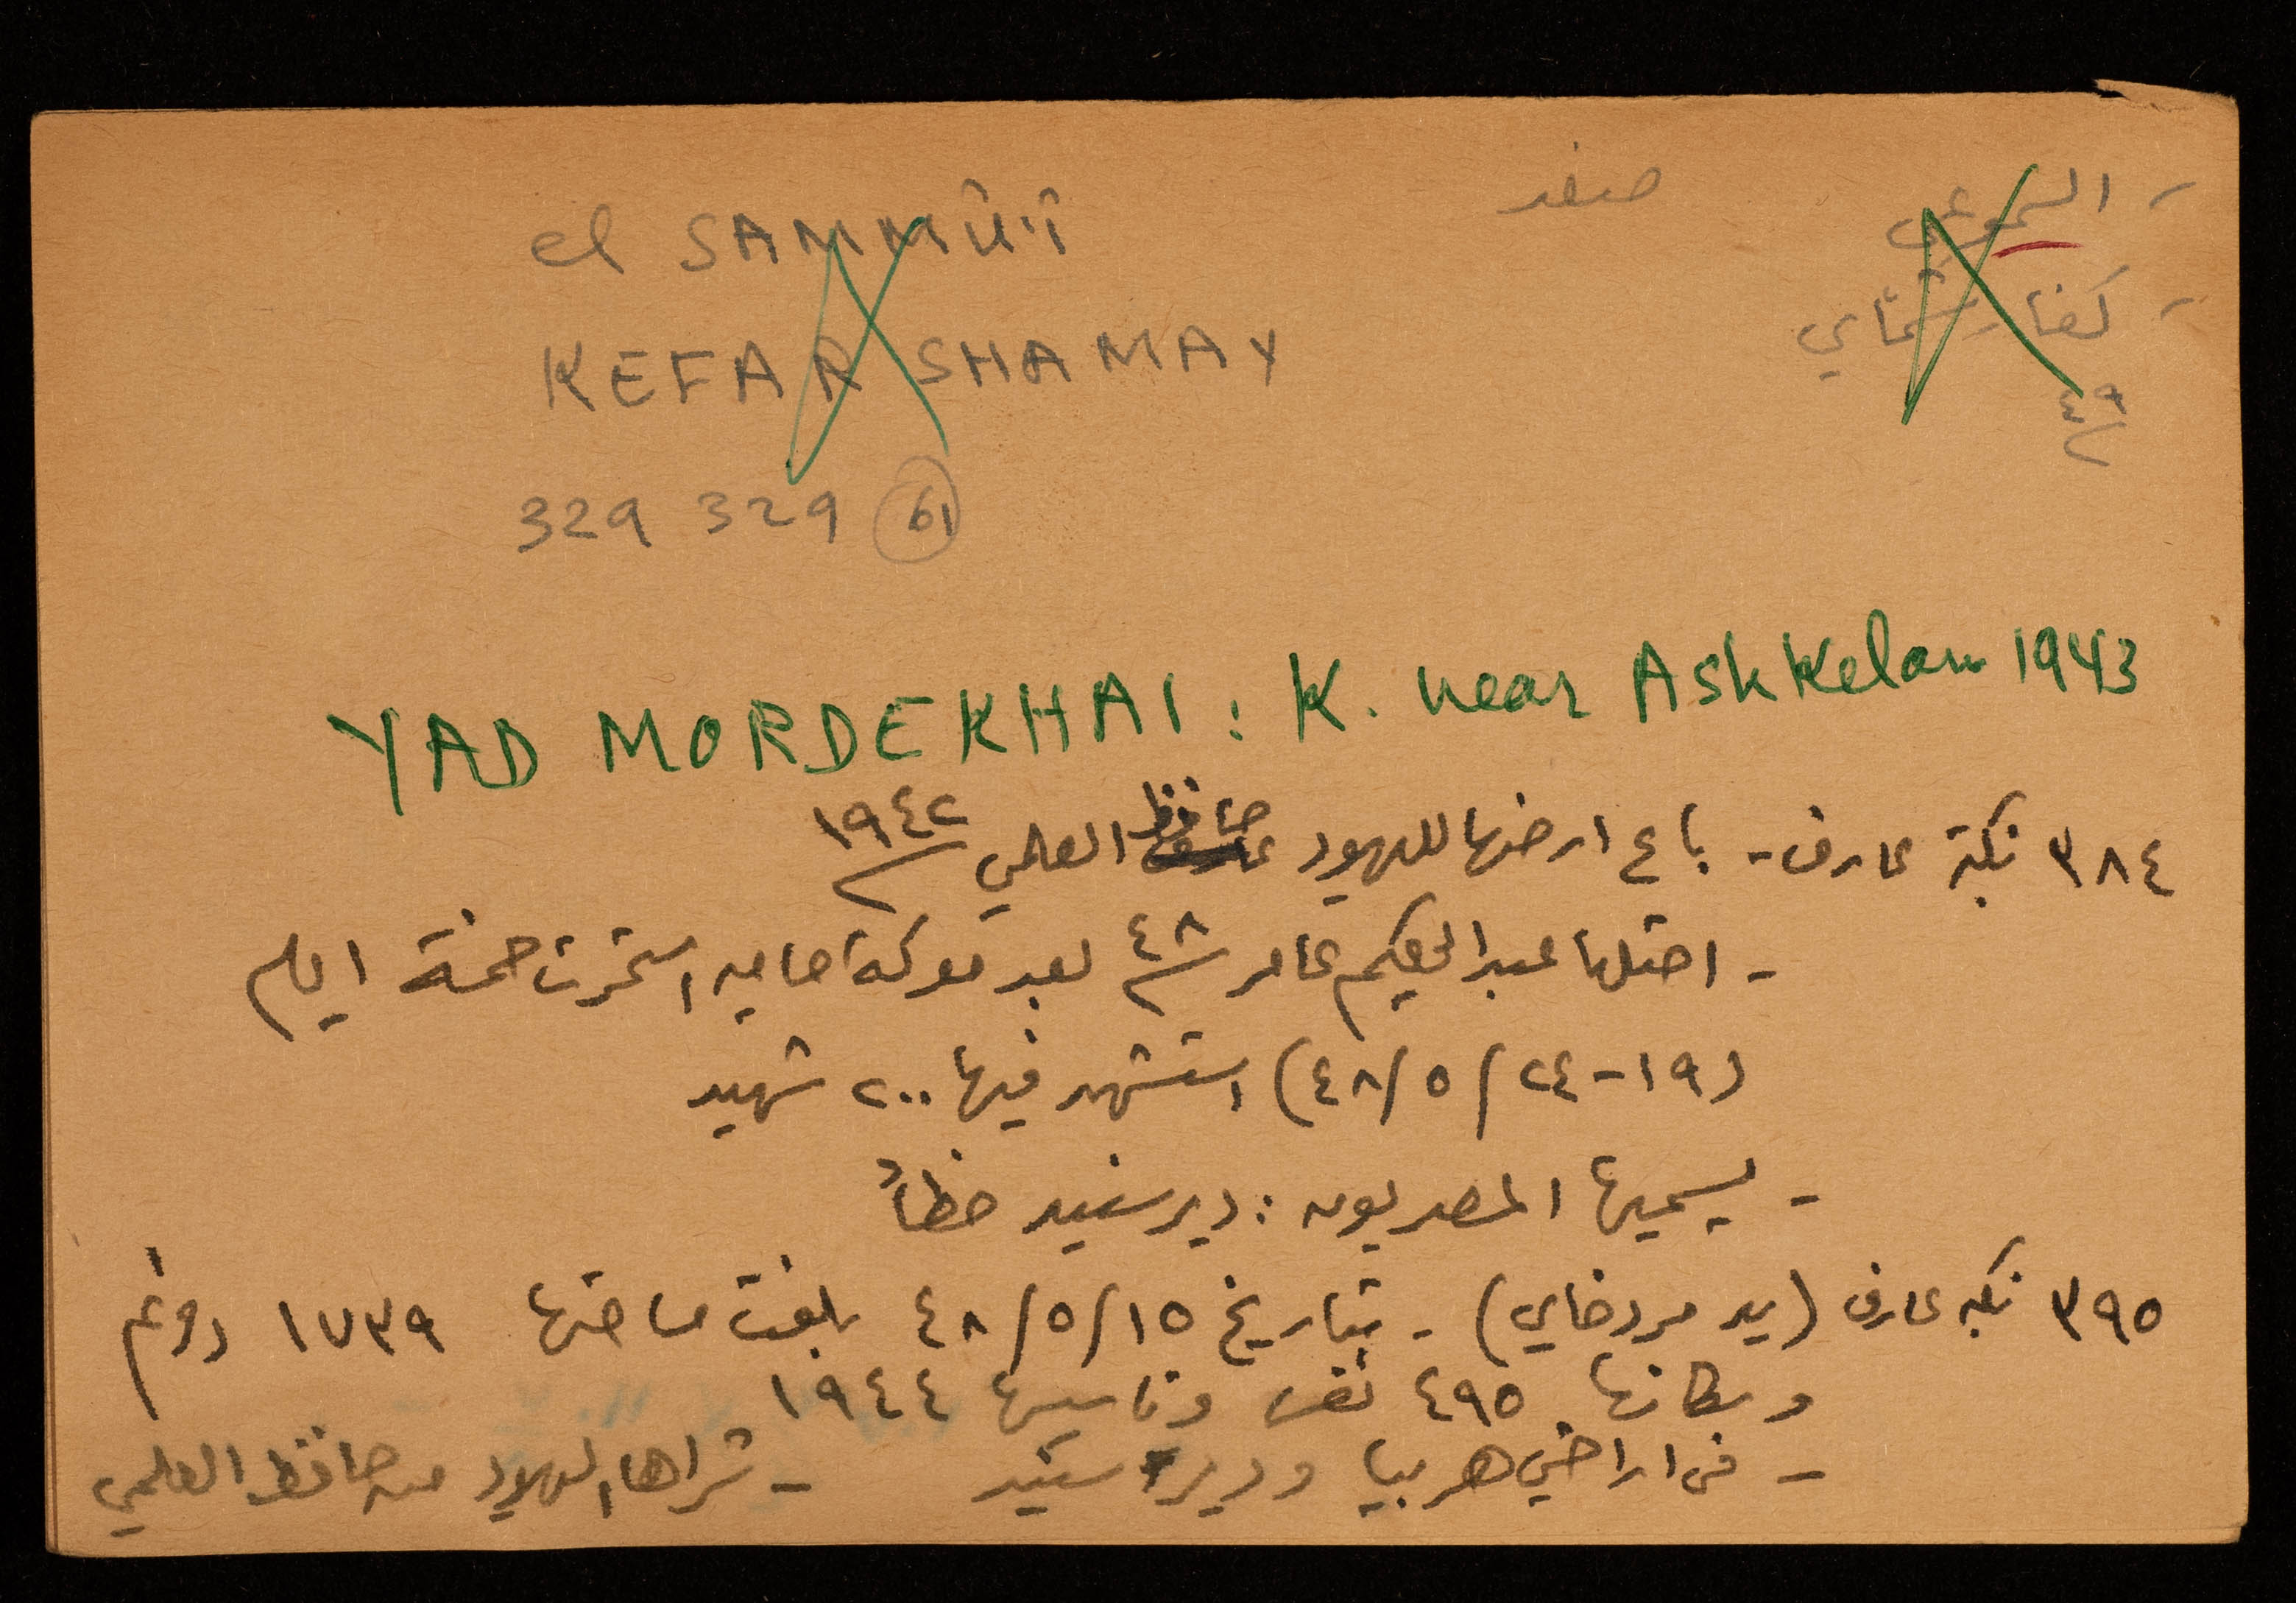 - السموعي صفد el SAMMŪ'Ī
- كفار شمّاي KEFAR SHAMAY
٤٩
329 329 61
YAD MORDEKHAI : K. near Ashkkelon 1943
٣٨٤ نكبة عارف - باع ارضها لليهود حافظ العلمي ١٩٤٢
- احتلها عبد الحكيم عامر ٤٨ بعد معركة حاميه استمرت خمسة ايام
(١٩-٢٤/٥/٤٨) استشهد فيها ٢٠٠ شهيد
- يسميها المصريون : دير سنيد خطأً
٣٩٥ نكبه عارف (يد مردخاي) - بتاريخ ١٥/٥/٤٨ بلغت مساحتها ١٧٣٩ دونم
وسكانها ٤٩٥ نفس وتاسيسها ١٩٤٤
- في اراضي هربيا ودير سنيد - شراها اليهود من حافظ العلمي